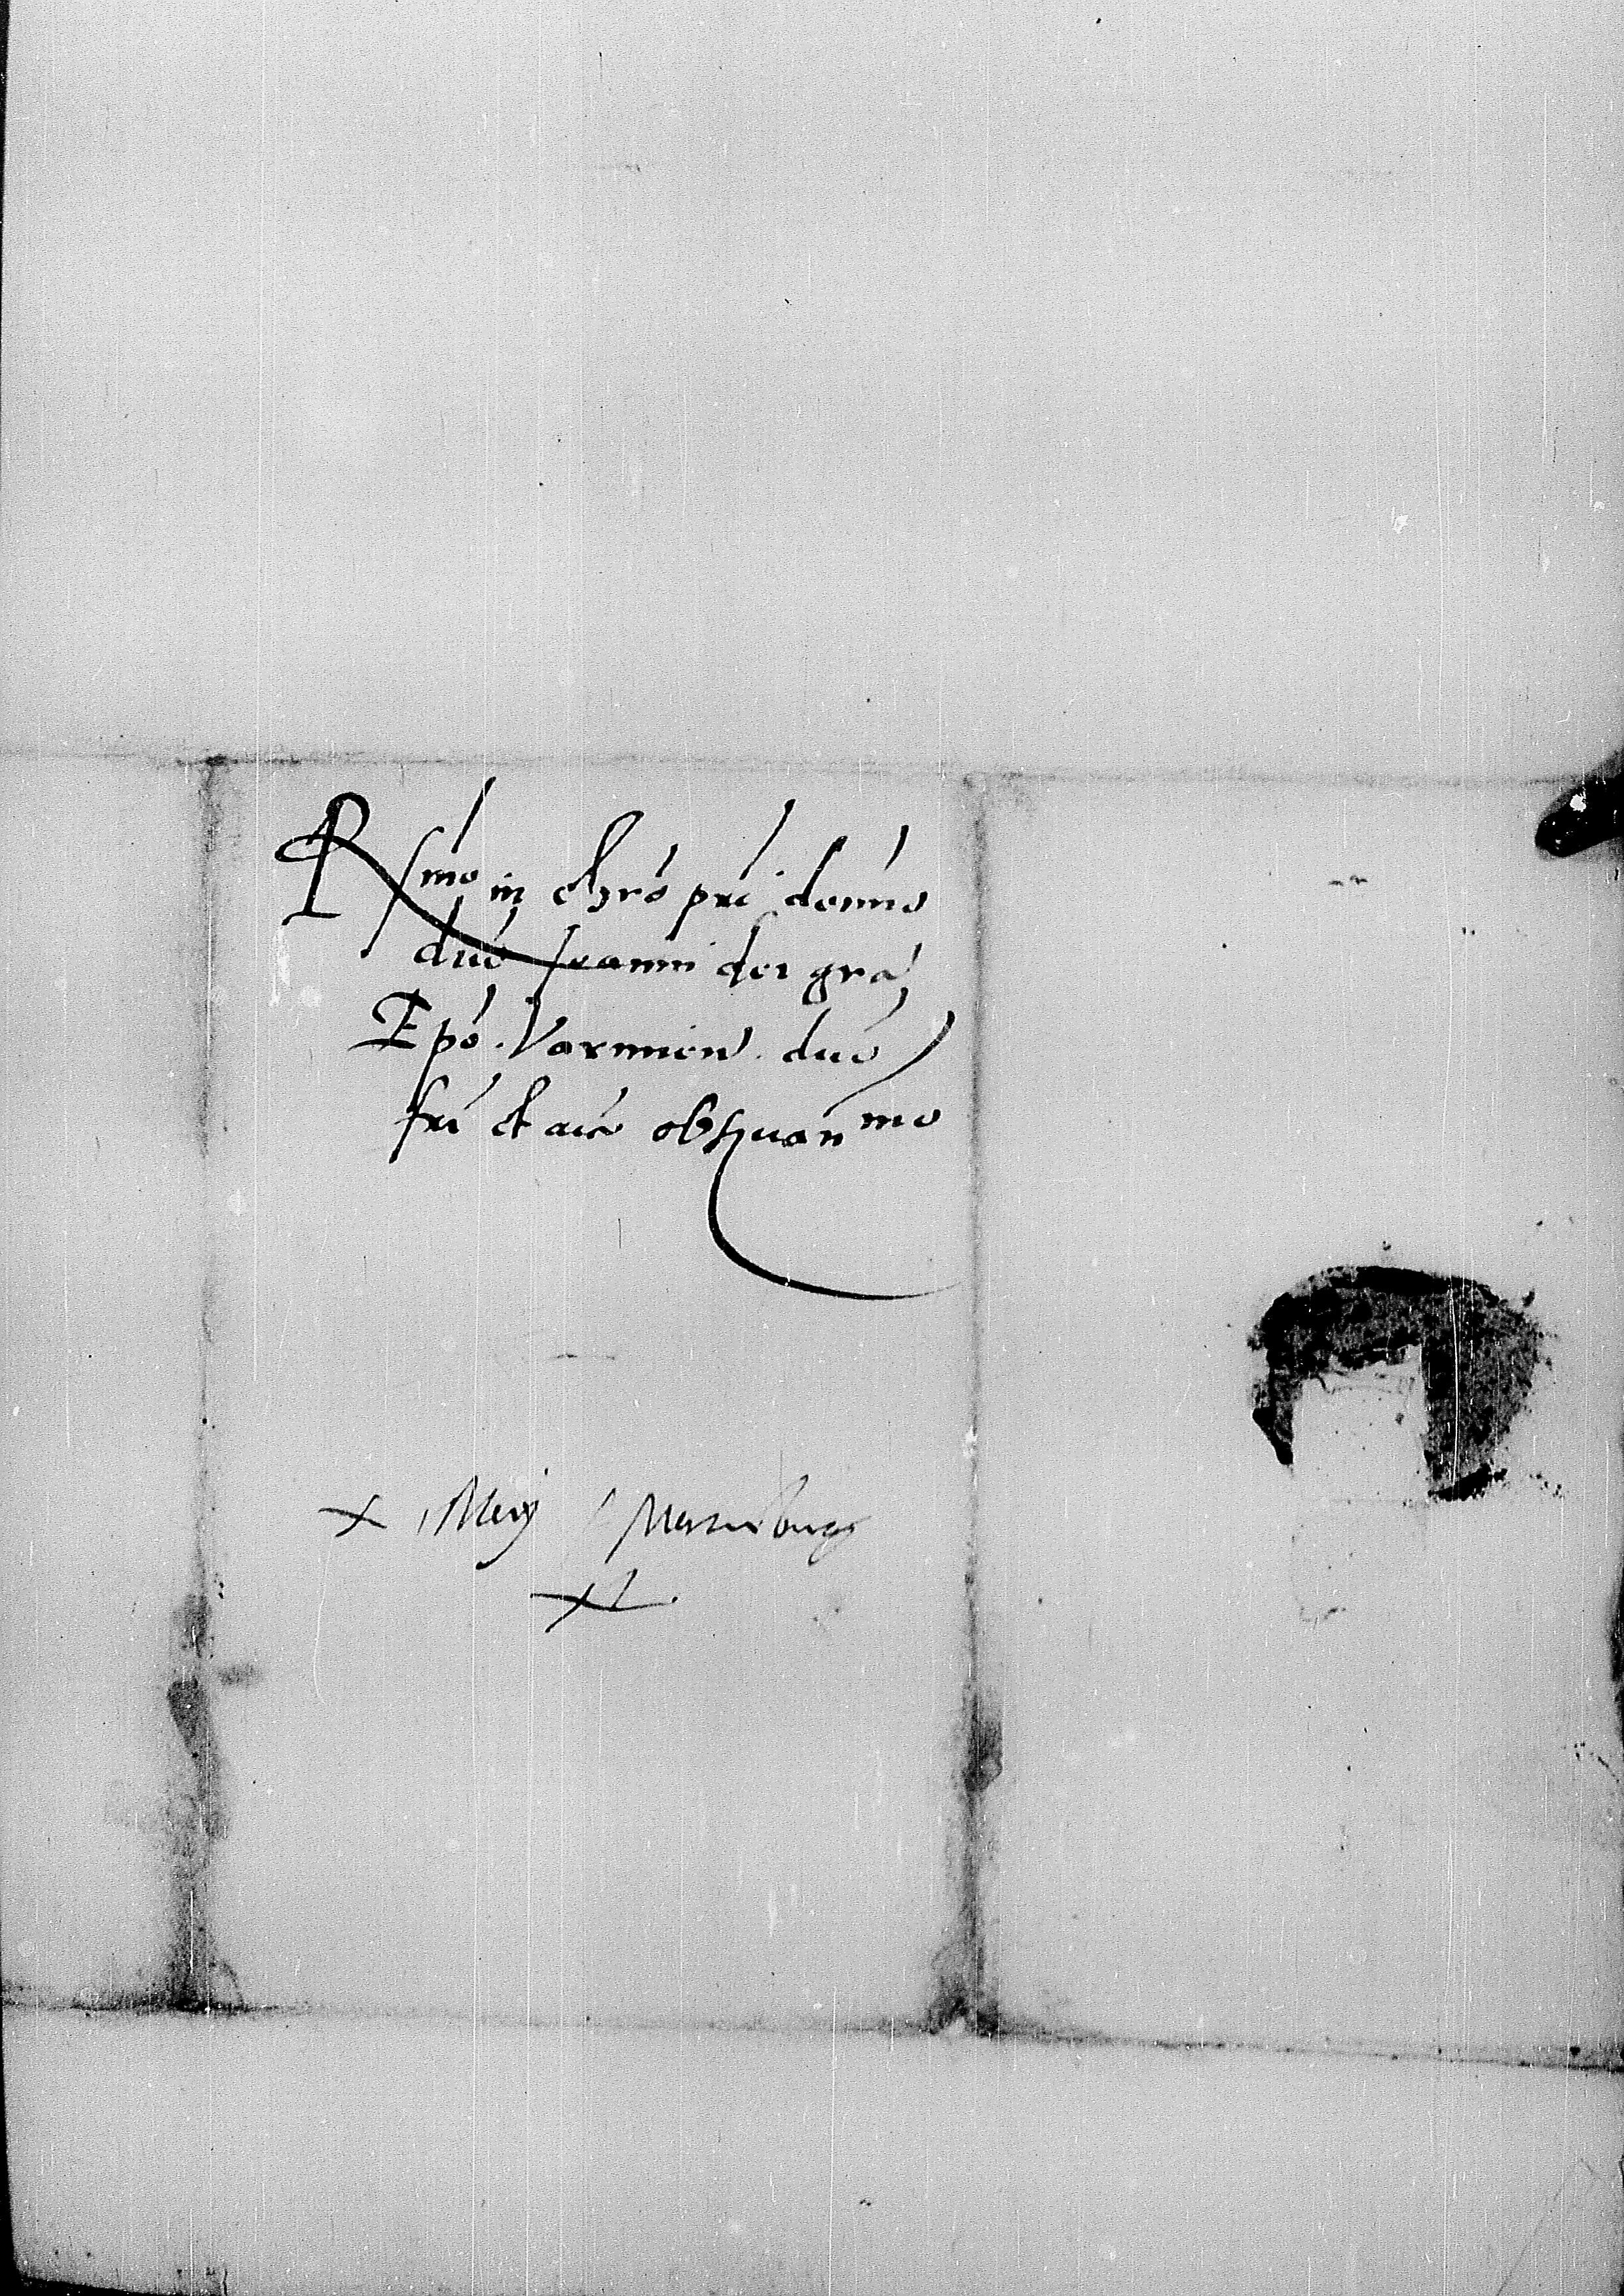 R smo in Chro pri domno
dno Joanni dei gra
Epo. Varmien. dno
fri et aico obseruan mo
x Maij Marienburg
xl.